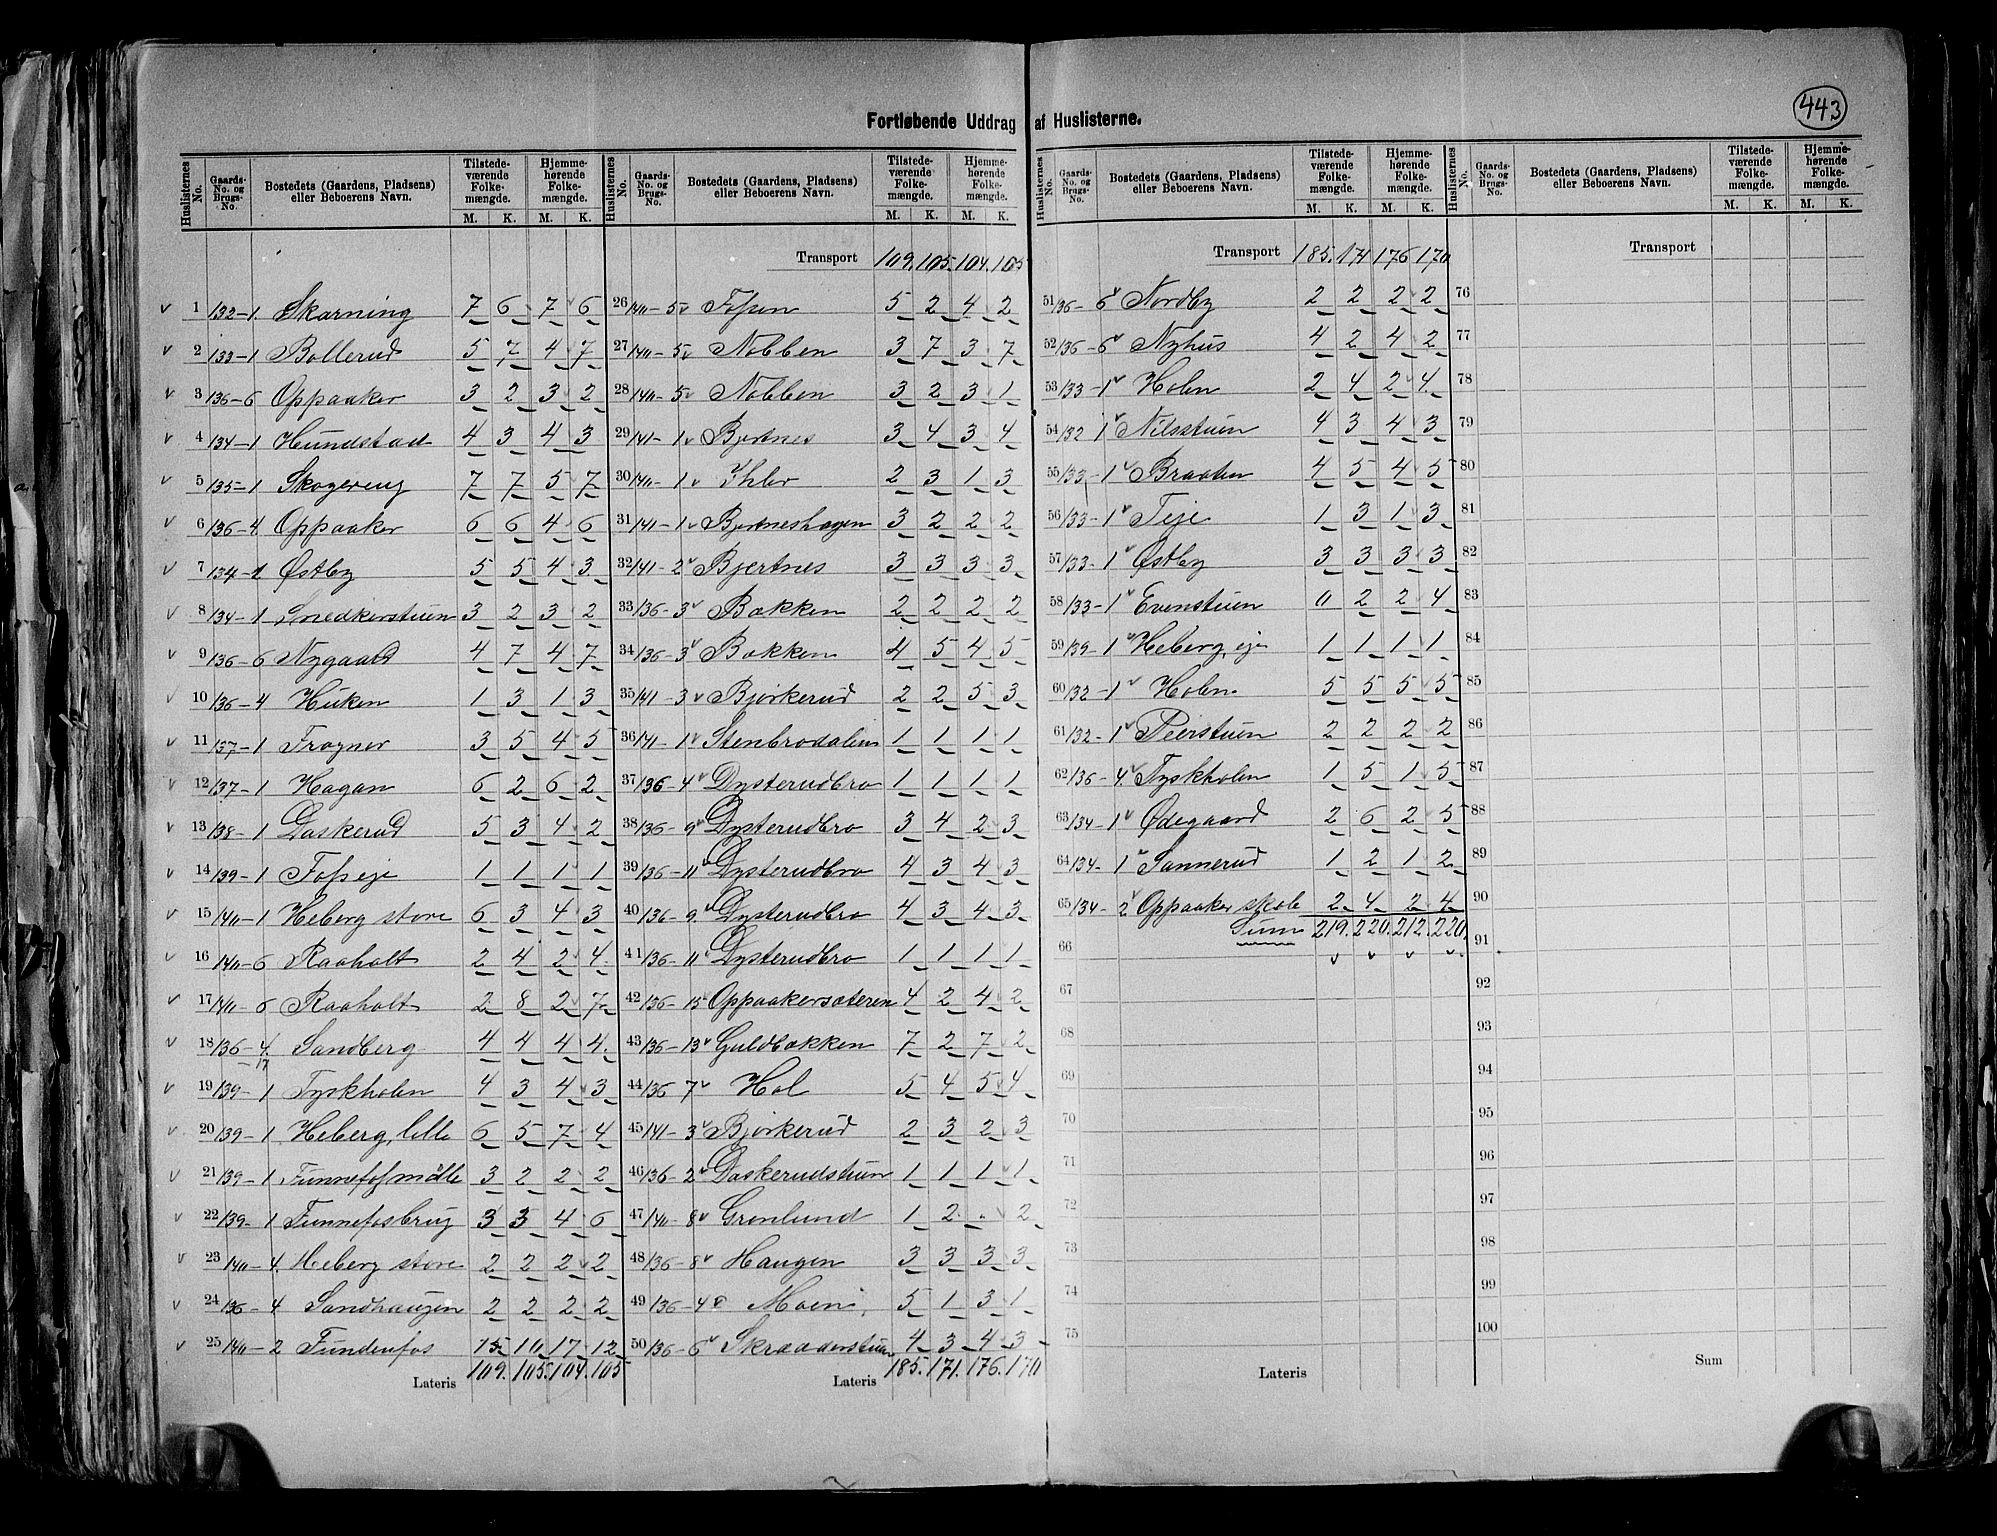 443
Fortløbende Uddrag af Huslisterne.
Huslisternes No. | Gaards-No. og Brugs-No. | Bostedets (Gaardens, Pladsens) eller Beboerens Navn. | Tilstede-værende Folke-mængde. M. K. | Hjemme-hørende Folke-mængde. M. K.
1 132-1. Skarning 7 6 7 6
2 133-1 Bollerud 5 7 4 7
3 136-6 Oppaaker 3 2 3 2
4 134-1 Hundstad 4 3 4 3
5 135-1 Skogereng 7 7 5 7
6 136-4 Oppaaker 6 6 4 6
7 134-2 Østby 5 5 4 3
8 134-1 Snedkerstuen 3 2 3 2
9 136-6 Nygaard 4 7 4 7
10 136-4 Huken 1 3 1 3
11 137-1 Frogner 3 5 4 5
12 137-1 Hagan 6 2 6 2
13 138-1 Daskerud 5 3 4 2
14 139-1 Foseje 1 1 1 1
15 140-1 Heberg store 6 3 4 3
16 140-6 Raaholt 2 4 2 4
17 140-6 Raaholt 2 8 2 7
18 136-4. 17 Sandberg 4 4 4 4
19 139-1 Tyskholen 4 3 4 3
20 139-1 Heberg, lille 6 5 7 4
21 139-1 Funnefosmölle 3 2 2 2
22 139-1 Funnefosbrug 3 3 4 6
23 140-4. Heberg store 2 2 2 2
24 136-4 Sandhaugen 2 2 2 2
25 140-2 Fundenfos 15 10 17 12
Lateris 109. 105. 104. 105
Transport 109. 105. 104. 105
26 140-5 Fosen 5 2 4 2
27 140-5 Nobben 3 7 3 7
28 140-5 Nobben 3 2 3 1
29 141-1 Bjertnes 3 4 3 4
30 140-1 Ihler 2 3 1 3
31 141-1 Bjertneshagen 3 2 2 2
32 141-2 Bjertnes 3 3 3 3
33 136-3 Bakken 2 2 2 2
34 136-3 Bakken 4 5 4 5
35 141-3 Bjørkerud 2 2 5 3
36 141-1 Stenbrodalen 1 1 1 1
37 136-4 Dysterudbro 1 1 1 1
38 136-9 Dysterudbro 3 4 2 3
39 136-11 Dysterudbro 4 3 4 3
40 136-9. Dysterudbro 4 3 4 3
41 136-11 Dysterudbro 1 1 1 1
42 136-15 Oppaakersæteren 4 2 4 2
43 136-13 Guldbakken 7 2 7 2
44 136 7 Hol 5 4 5 4
45 141-3 Bjørkerud 2 3 2 3
46 136-2 Daskerudstuen 1 1 1 1
47 140-8 Grønlund 1 2 - 2
48 136-8 Haugen 3 3 3 3
49 136-4 Moen 5 1 3 1
50 136-6 Skrædderstuen 4 3 4 3
Lateris 185. 171. 176. 170
Transport 185. 171 176 170
51 136-6 Nordby 2 2 2 2
52 136-6 Nyhus 4 2 4 2
53 133-1 Holen 2 4 2 4.
54 132 1 Nilsstuen 4 3 4 3
55 133-1 Braaten 4 5 4 5
56 133-1 Teje 1 3 1 3
57 133-1 Østby 3 3 3 3
58 133-1 Evenstuen 0 2 2 4
59 139-1 Heberg, eje 1 1 1 1
60 132-1 Holen 5 5 5 5
61 132-1 Peerstuen 2 2 2 2
62 136-4. Tyskholen 1 5 1 5
63 134-1 Ødegaard 2 6 2 5
64 134-1 Sannerud 1 2 1 2
65 134-2 Oppaaker skole 2 4 2 4
Sum 219. 220. 212. 220.
66
67
68
69
70
71
72
73
74
75
Lateris
Transport
76
77
78
79
80
81
82
83
84
85
86
87
88
89
90
91
92
93
94
95
96
97
98
99
100
Sum